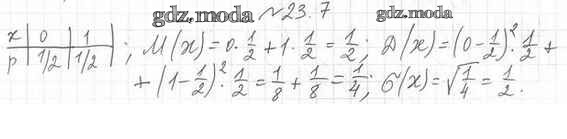 gdz.moda №23.7 gdz.moda
x | 0 | 1
p | 1/2 | 1/2 ; M(x)=0·1/2+1·1/2=1/2; D(x)=(0-1/2)²·1/2+
+(1-1/2)²·1/2=1/8+1/8=1/4; σ(x)=√1/4=1/2.